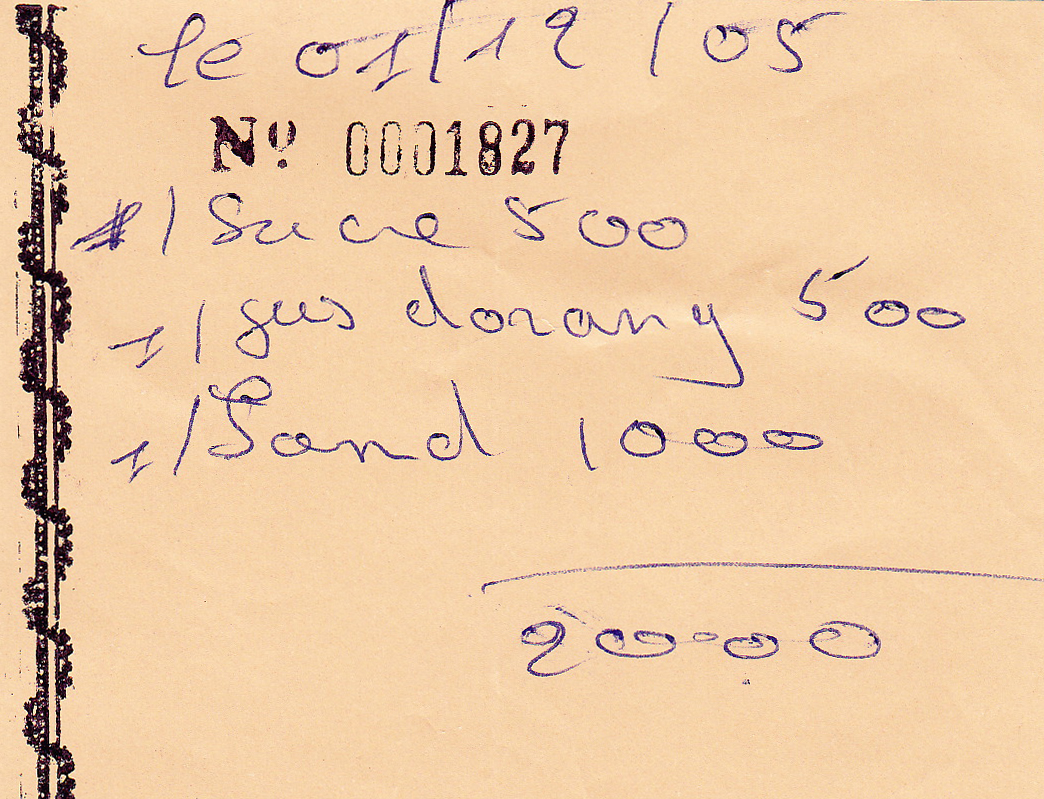 le 01/12/05
Nº 0001827
1/ Sucre 500
1/ jus dorany 500
1/ Sand 1000
2000